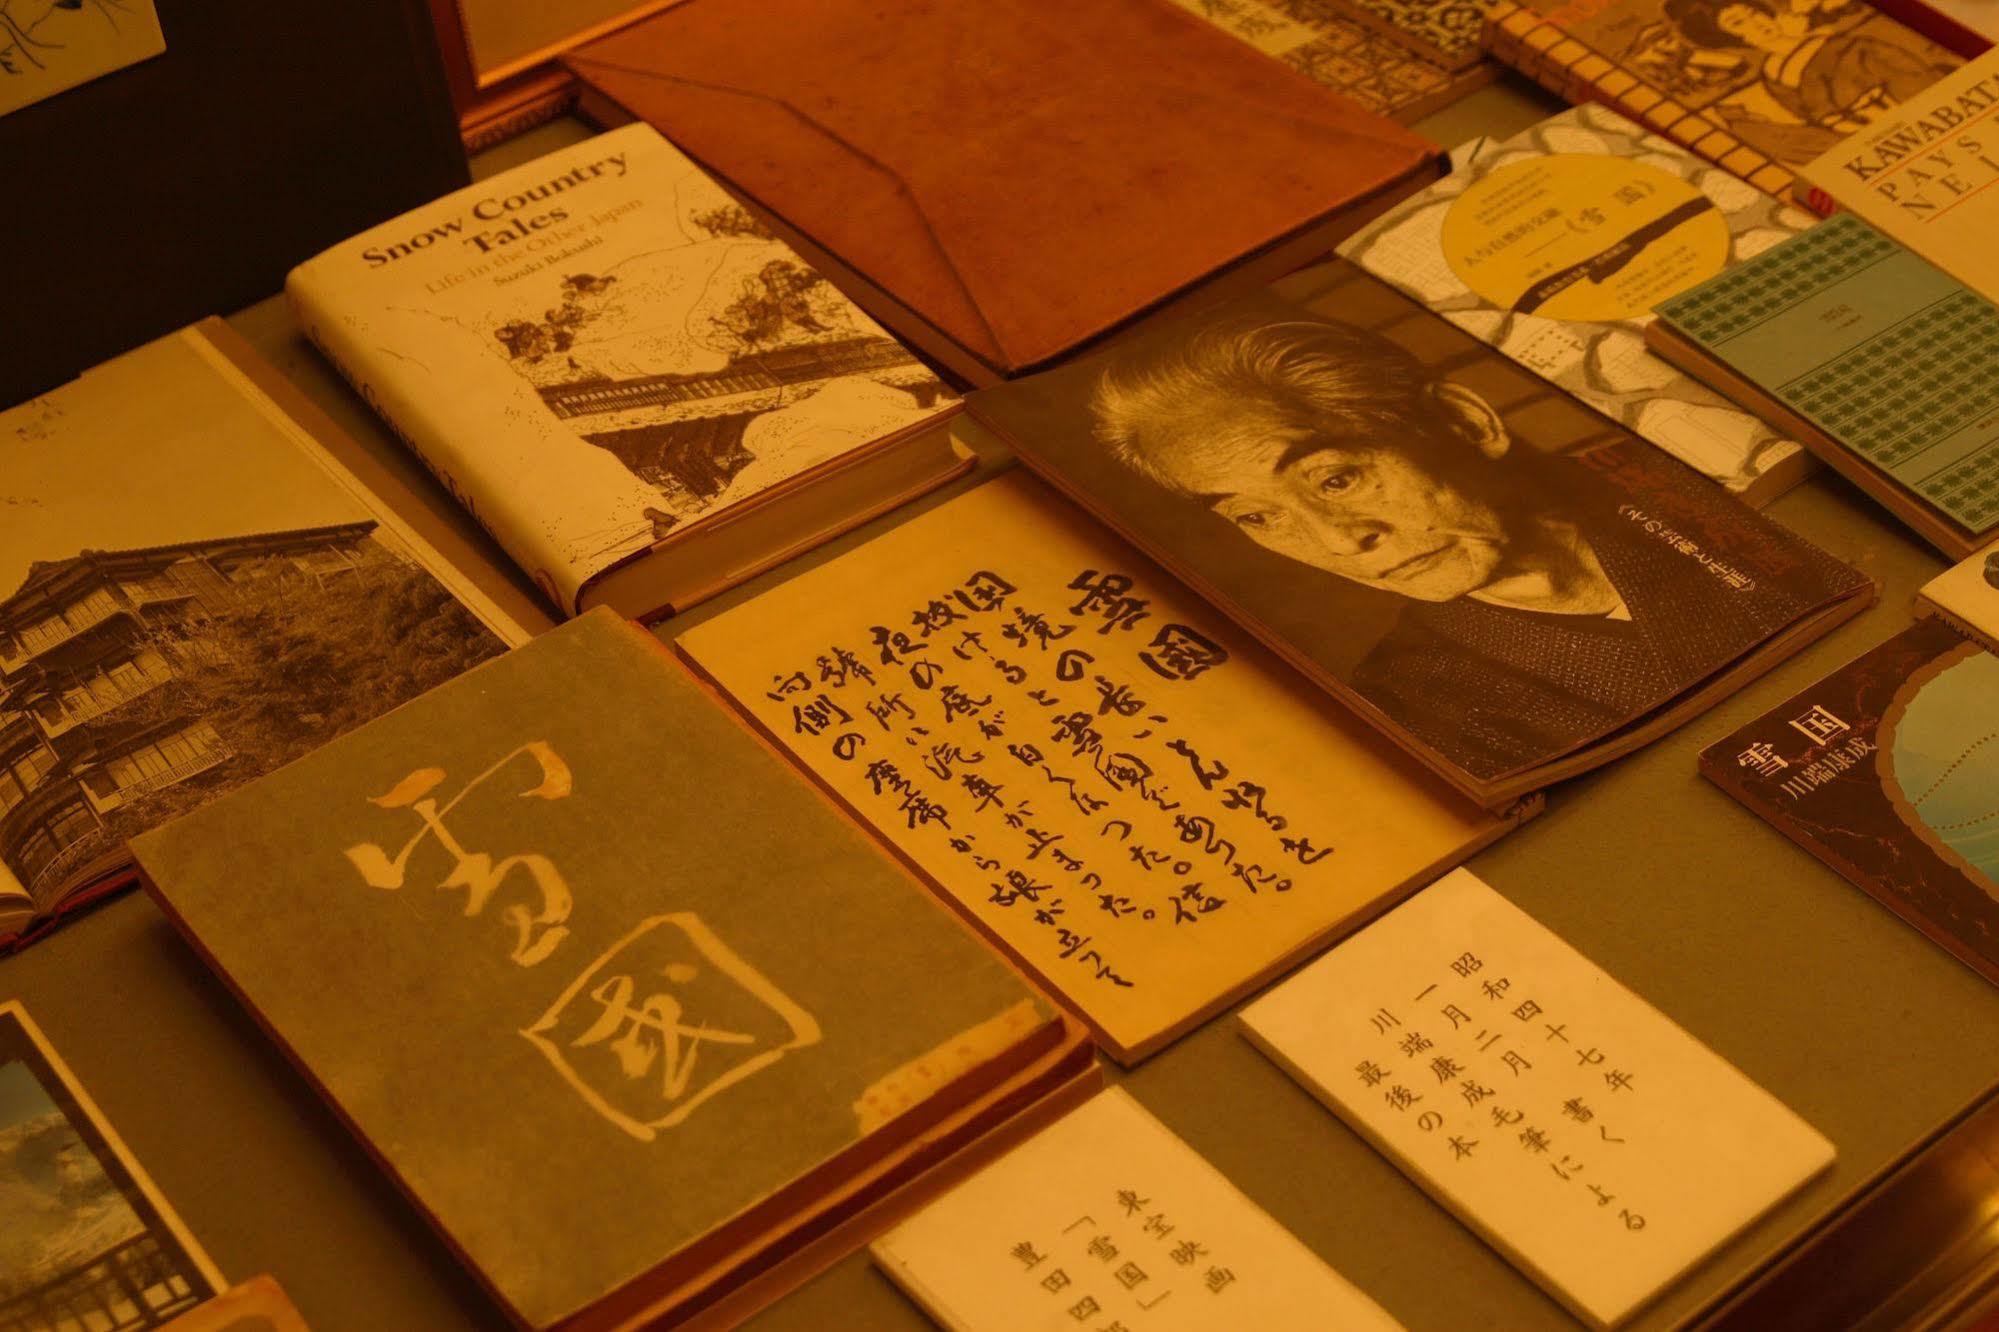 Snow Country
Tales
Life in the Other Japan
Suzuki Bokushi
Snow Country Tales
人与自然的交融
——《雪国》
KAWABATA
PAYS
NEI
《その芸術と生涯》
雪國
国境の長いとんねるを
抜けると雪國であった。
夜の底が白くなつた。信
號所に汽車が止まつた。
向側の座席から娘が立つて
雪国
川端康成
雪國
昭和四十七年
一月二月書く
川端康成毛筆による
最後の本
東宝映画
「雪国」
豊田四郎